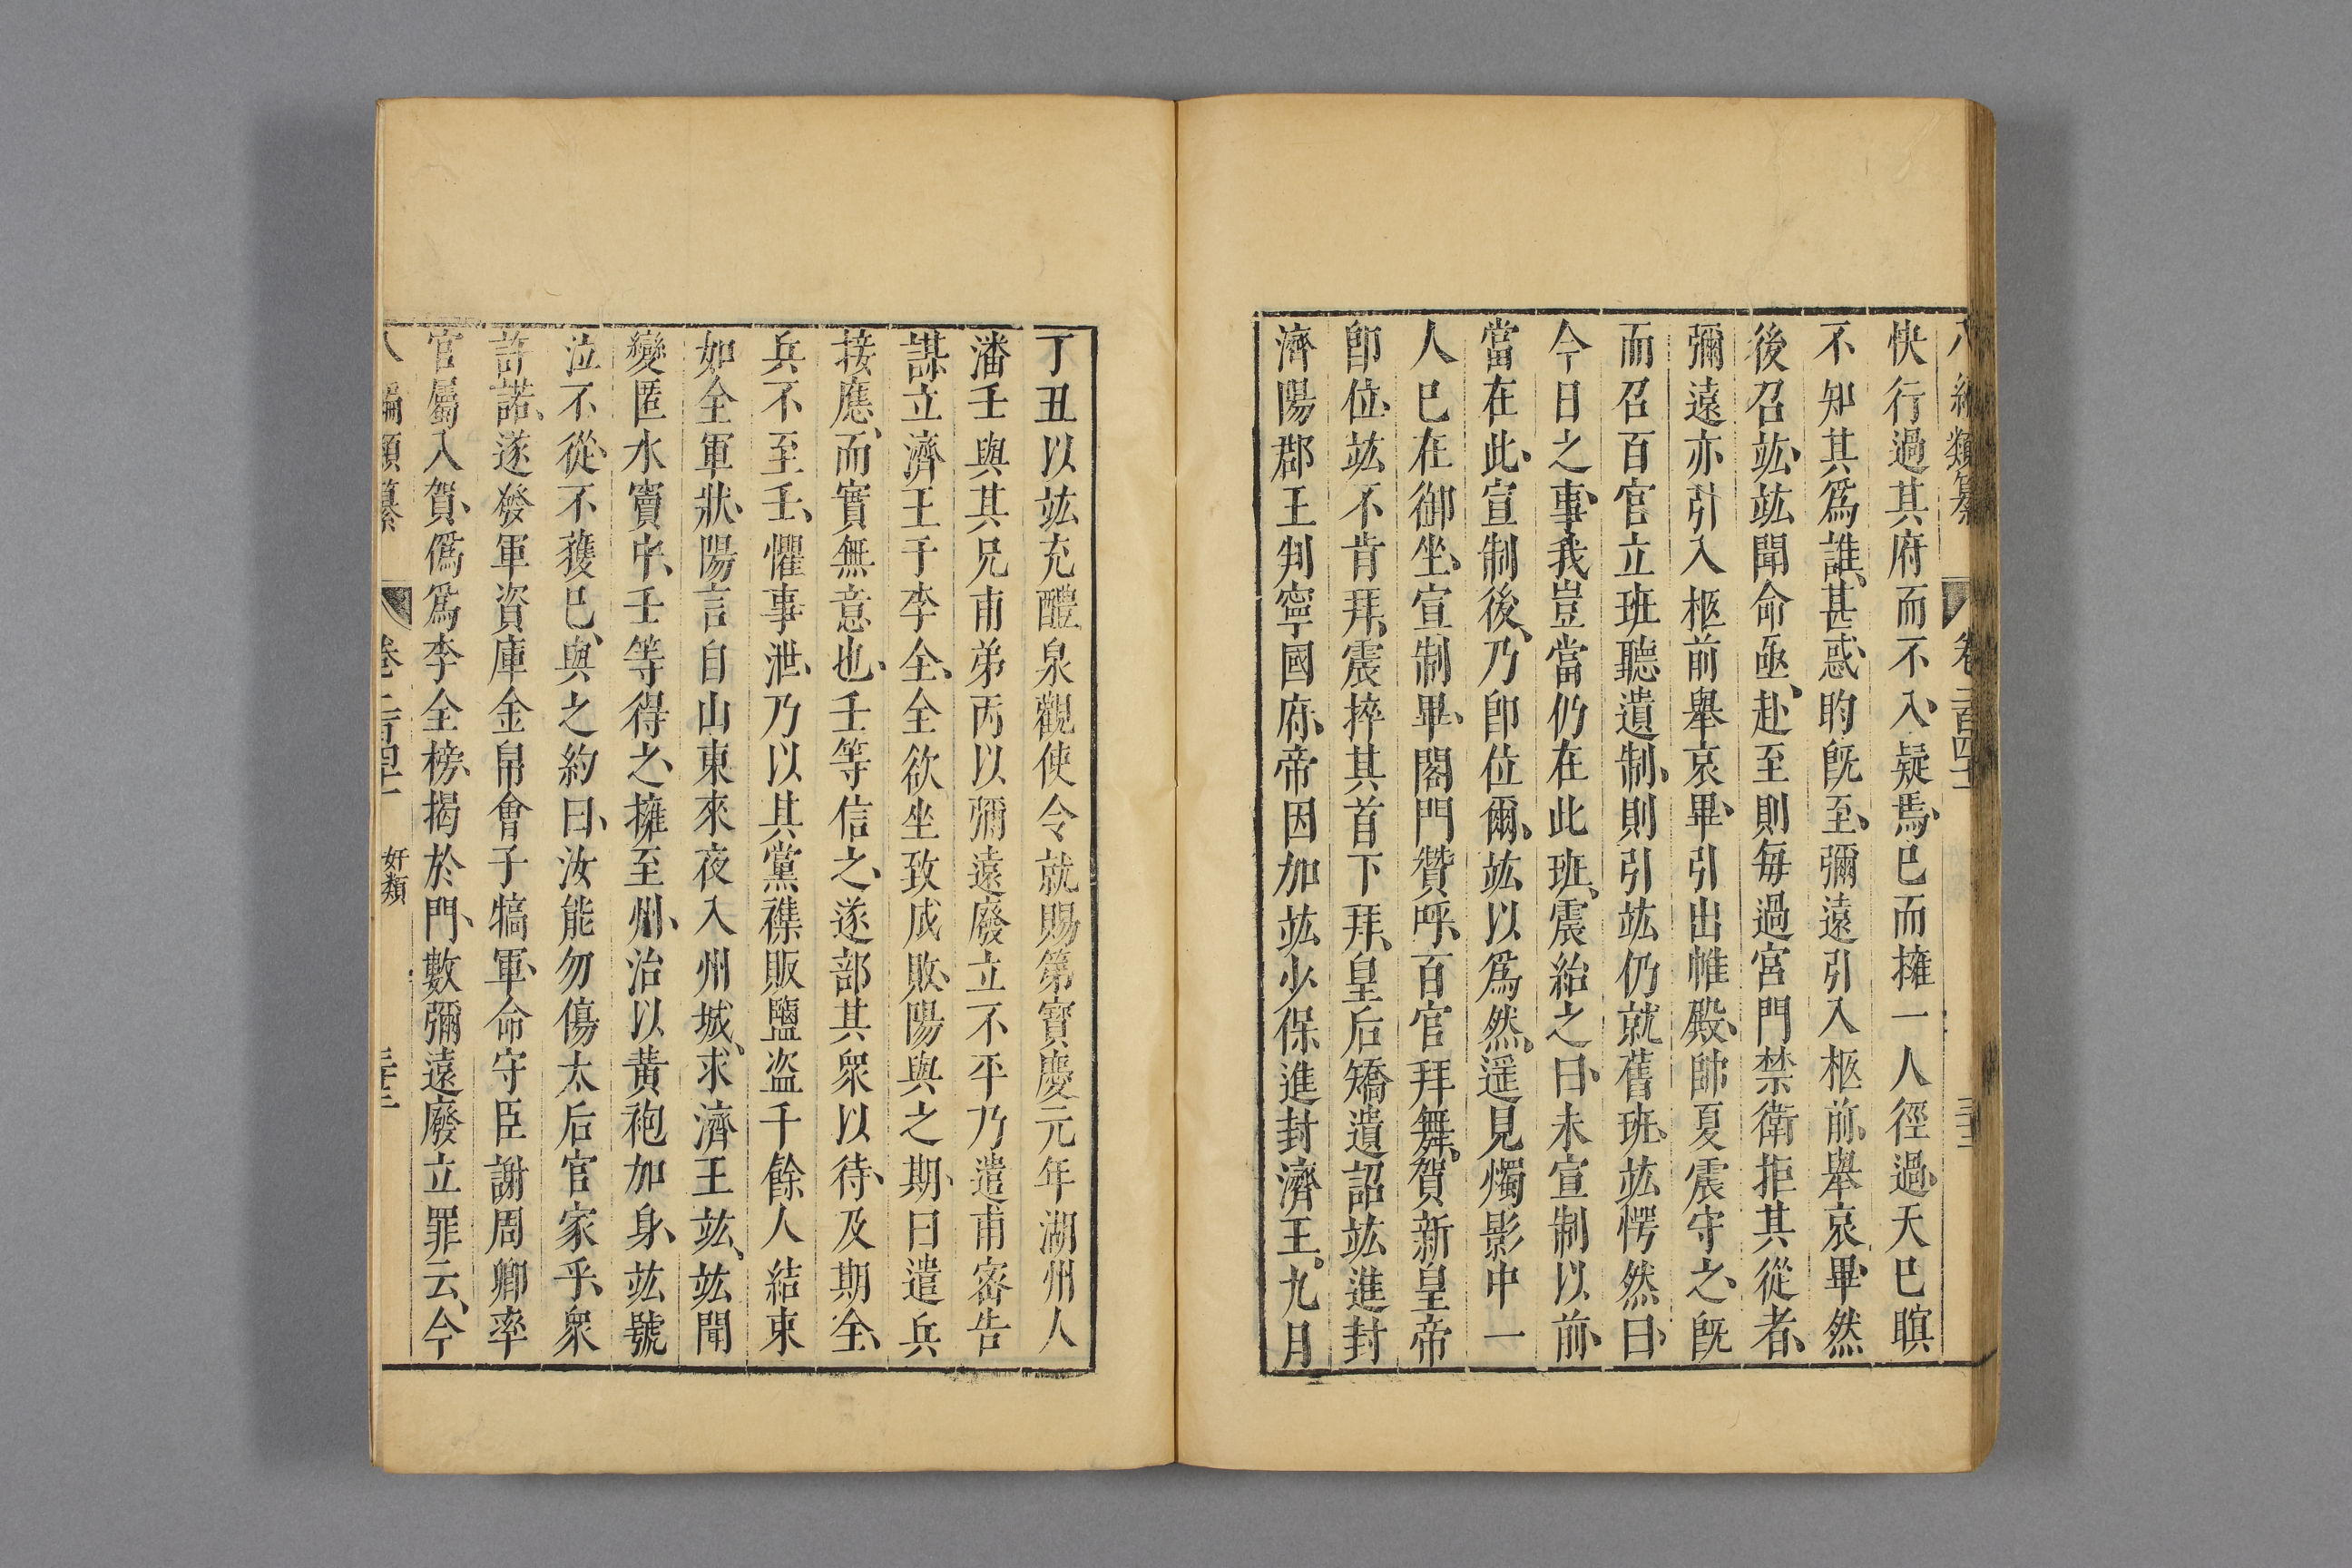 八編類纂 卷二百四十 三十三
快行過其府而不入、疑焉、已而擁一人徑過、天已瞑
不知其爲誰、甚惑、昀旣至、彌遠引入柩前、舉哀畢、然
後召竑、竑聞命亟赴、至則每過宮門禁衛拒其從者、
彌遠亦引入柩前舉哀畢、引出帷殿、帥夏震守之、旣
而召百官立班聽遺制、則引竑仍就舊班、竑愕然曰、
今日之事、我豈當仍在此班、震紿之曰、未宣制以前、
當在此、宣制後、乃卽位爾、竑以爲然、遥見燭影中一
人已在御坐、宣制畢、閣門贊呼、百官拜舞、賀新皇帝
卽位、竑不肯拜、震捽其首下拜、皇后矯遺詔竑進封
濟陽郡王判寧國府、帝因加竑少保進封濟王。九月
丁丑以竑充醴泉觀使令就賜第寶慶元年湖州人
潘壬與其兄甫弟丙以彌遠廢立不平乃遣甫密告
謀立濟王于李全、全欲坐致成敗、陽與之期、曰遣兵
接應、而實無意也、壬等信之、遂部其衆以待、及期全、
兵不至、壬、懼事泄、乃以其黨襍販鹽盗千餘人結束
如全軍狀、陽言自山東來夜入州城、求濟王竑、竑聞
變匿水竇中、壬等得之、擁至州、治以黄袍加身、竑號
泣不從、不獲已、與之約曰、汝能勿傷太后官家乎、衆
許諾、遂發軍資庫金帛會子犒軍、命守臣謝周卿率
官屬入賀、僞爲李全榜、揭於門、數彌遠廢立罪云、今
八編類纂 卷二百四十 奸類